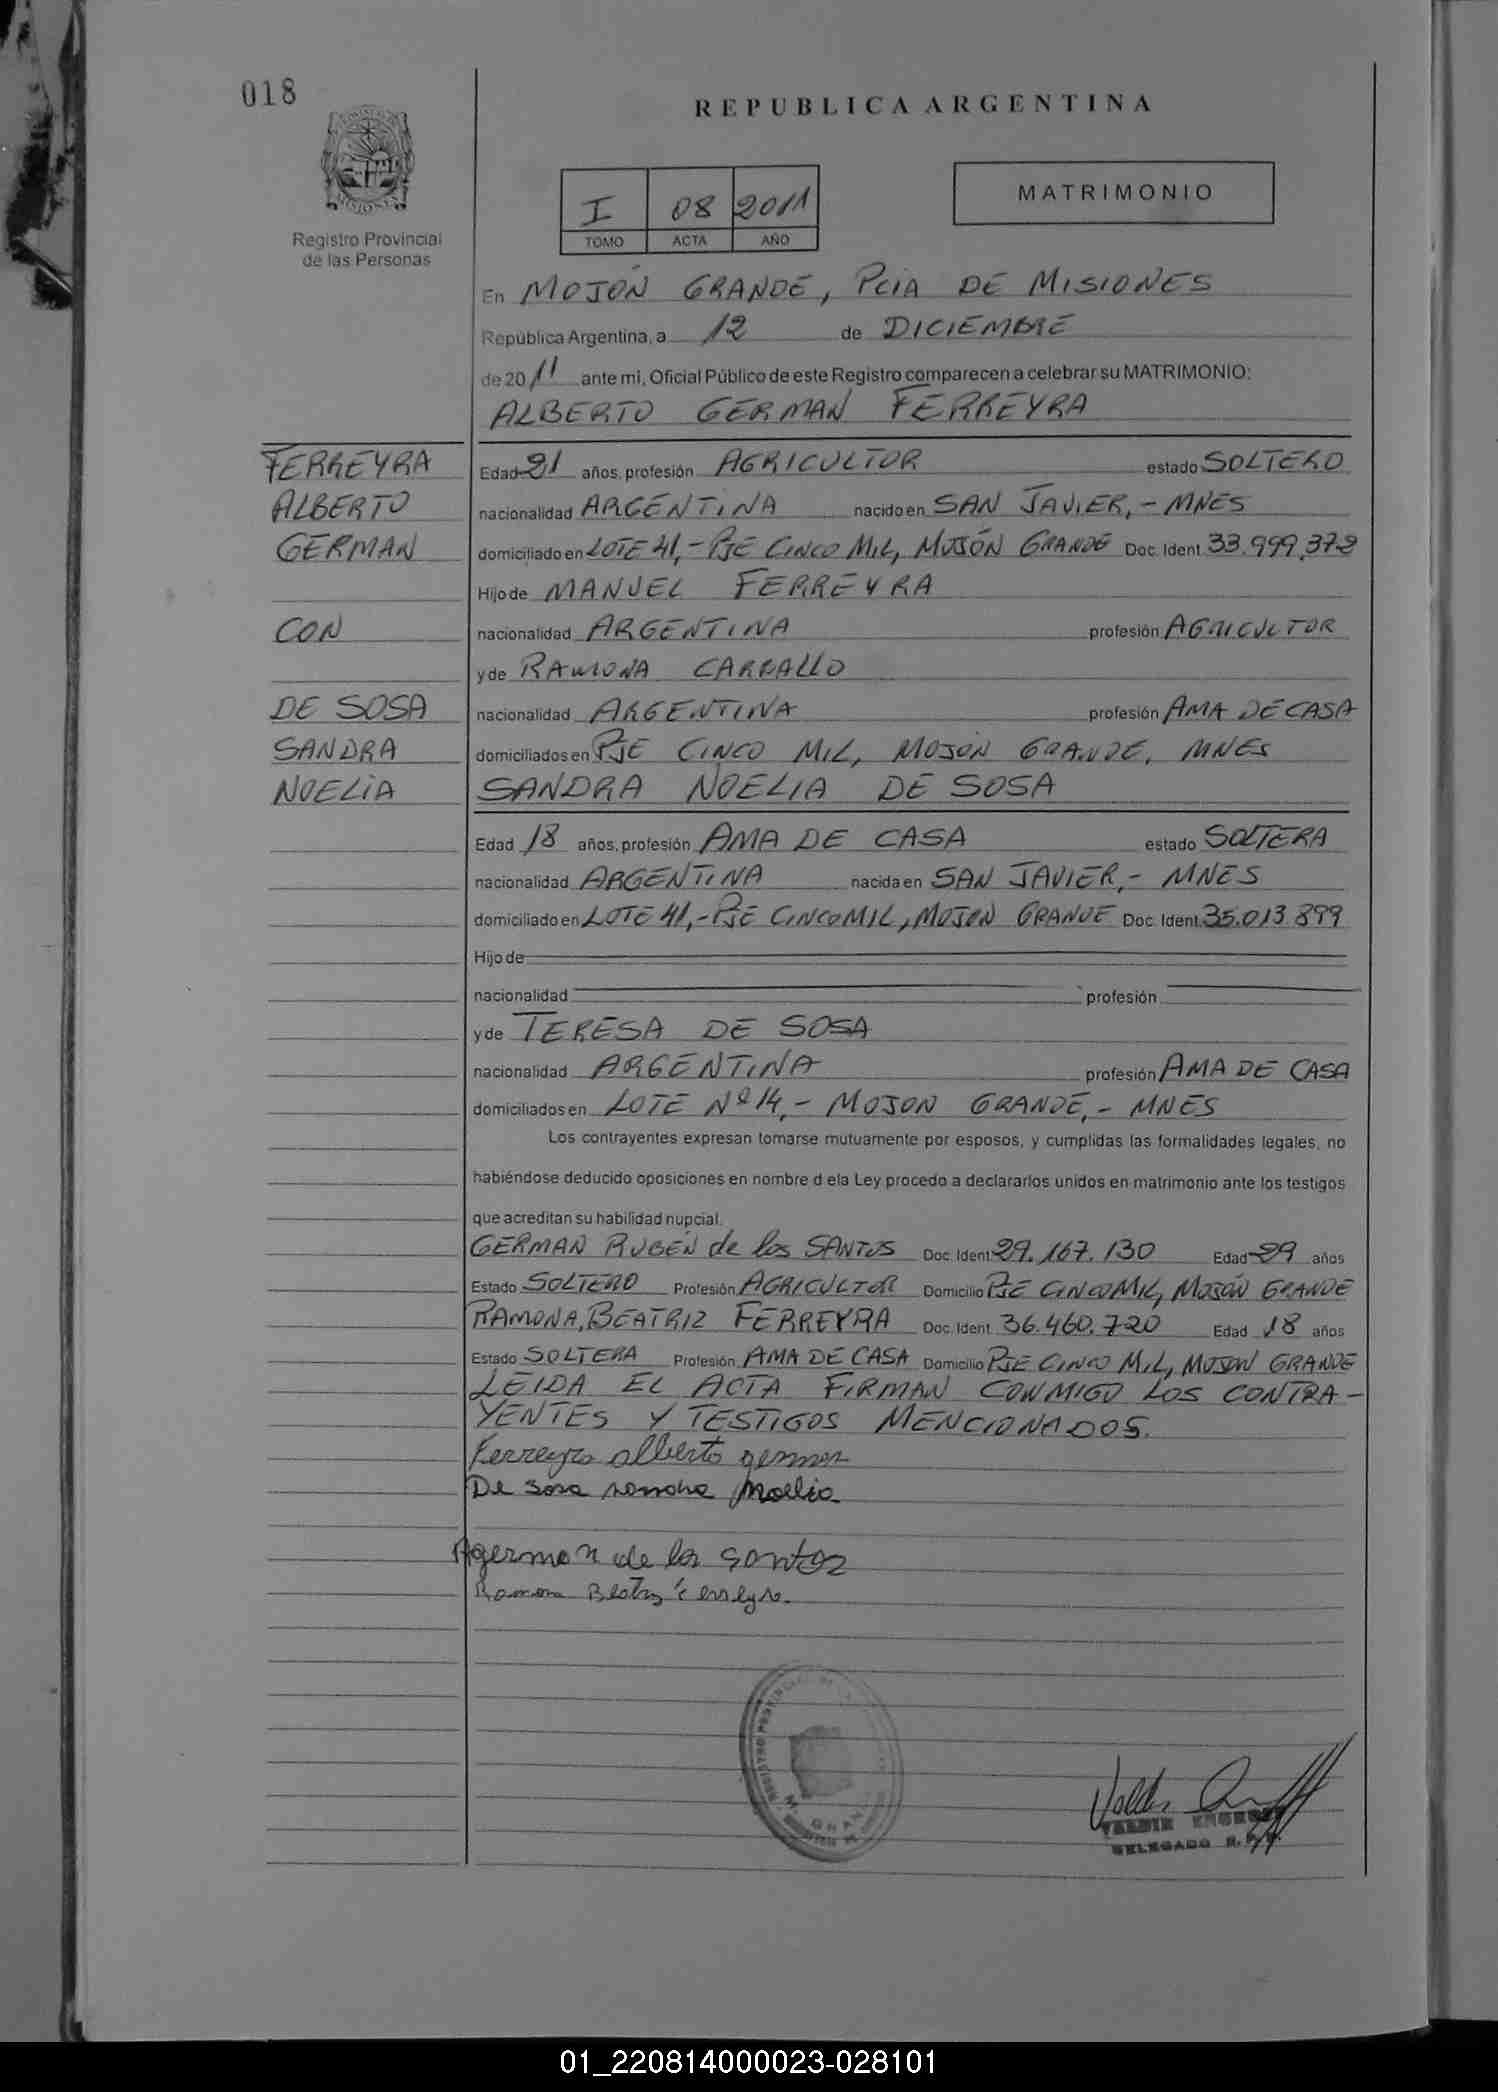 018
REPUBLICA ARGENTINA
Registro Provincial
de las Personas
I 08 2011
TOMO ACTA AÑO
MATRIMONIO
En MOJÓN GRANDE, PCIA DE MISIONES
República Argentina, a 12 de DICIEMBRE
de 20 11 ante mi, Oficial Público de este Registro comparecen a celebrar su MATRIMONIO:
ALBERTO GERMAN FERREYRA
FERREYRA
ALBERTO
GERMAN
CON
DE SOSA
SANDRA
NOELIA
Edad 21 años, profesión AGRICULTOR estado SOLTERO
nacionalidad ARGENTINA nacido en SAN JAVIER,- MNES
domiciliado en LOTE 41,- PJE CINCO MIL, MOJÓN GRANDE Doc. Ident. 33.999.378
Hijo de MANUEL FERREYRA
nacionalidad ARGENTINA profesión AGRICULTOR
y de RAMONA CARBALLO
nacionalidad ARGENTINA profesión AMA DE CASA
domiciliados en PJE CINCO MIL, MOJÓN GRANDE, MNES
SANDRA NOELIA DE SOSA
Edad 18 años, profesión AMA DE CASA estado SOLTERA
nacionalidad ARGENTINA nacida en SAN JAVIER,- MNES
domiciliado en LOTE 41,- PJE CINCO MIL, MOJON GRANDE Doc. Ident. 35.013.899
Hijo de
nacionalidad profesión
y de TERESA DE SOSA
nacionalidad ARGENTINA profesión AMA DE CASA
domiciliados en LOTE Nº 14,- MOJON GRANDE,- MNES
Los contrayentes expresan tomarse mutuamente por esposos, y cumplidas las formalidades legales, no
habiéndose deducido oposiciones en nombre d ela Ley procedo a declararlos unidos en matrimonio ante los testigos
que acreditan su habilidad nupcial.
GERMAN RUBÉN de los SANTOS Doc. Ident. 29.167.130 Edad 29 años
Estado SOLTERO Profesión AGRICULTOR Domicilio PJE CINCO MIL, MOJÓN GRANDE
RAMONA BEATRIZ FERREYRA Doc. Ident. 36.460.720 Edad 18 años
Estado SOLTERA Profesión AMA DE CASA Domicilio PJE CINCO MIL, MOJON GRANDE
LEIDA EL ACTA FIRMAN CONMIGO LOS CONTRA-
YENTES Y TESTIGOS MENCIONADOS.
Ferreyra alberto german
De Sosa sandra Noelia
german de los santos
Ramona Beatriz Ferreyra.
DELEGADO R.P.P.
01_220814000023-028101